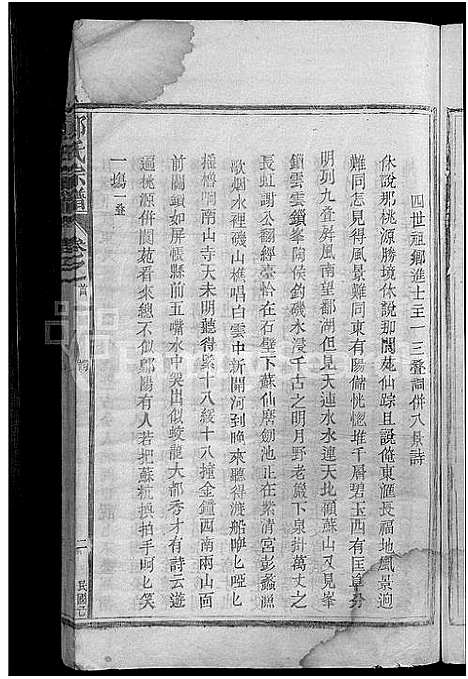 四世祖鄉進士王一三叠詞併八景詩
休說那桃源勝境休說那閬苑仙踪且說俺東滙長福地風景迥
難同怎見得風景難同東有陽儲恍惚堆千層碧玉西有匡阜分
明列九叠屏風南望鄱湖但見天連水水連天北顧蘇山又見峯
鎖雲雲鎖峯陶侯釣磯木浸千古之明月野老巖下泉掛萬丈之
長虹謝公翻經臺恰在石壁下蘇仙磨劒池正在紫清宮彭蠡湖
歌烟水裡磯山樵唱白雲中新開河到晚來聽得漁船咿匕啞匕
撞樓前南山寺天未明聽得緊十八緩十八撞金鐘西南兩山面
前關鎖如屏帳縣前五嘯水中突出似蛟龍大都秀才有詩云遊
遍桃源併閬苑看來總不似都陽有人若把蘇杭換拍手呵匕笑
一塲一叠
氏宗譜
卷之首
詩
二
民國己